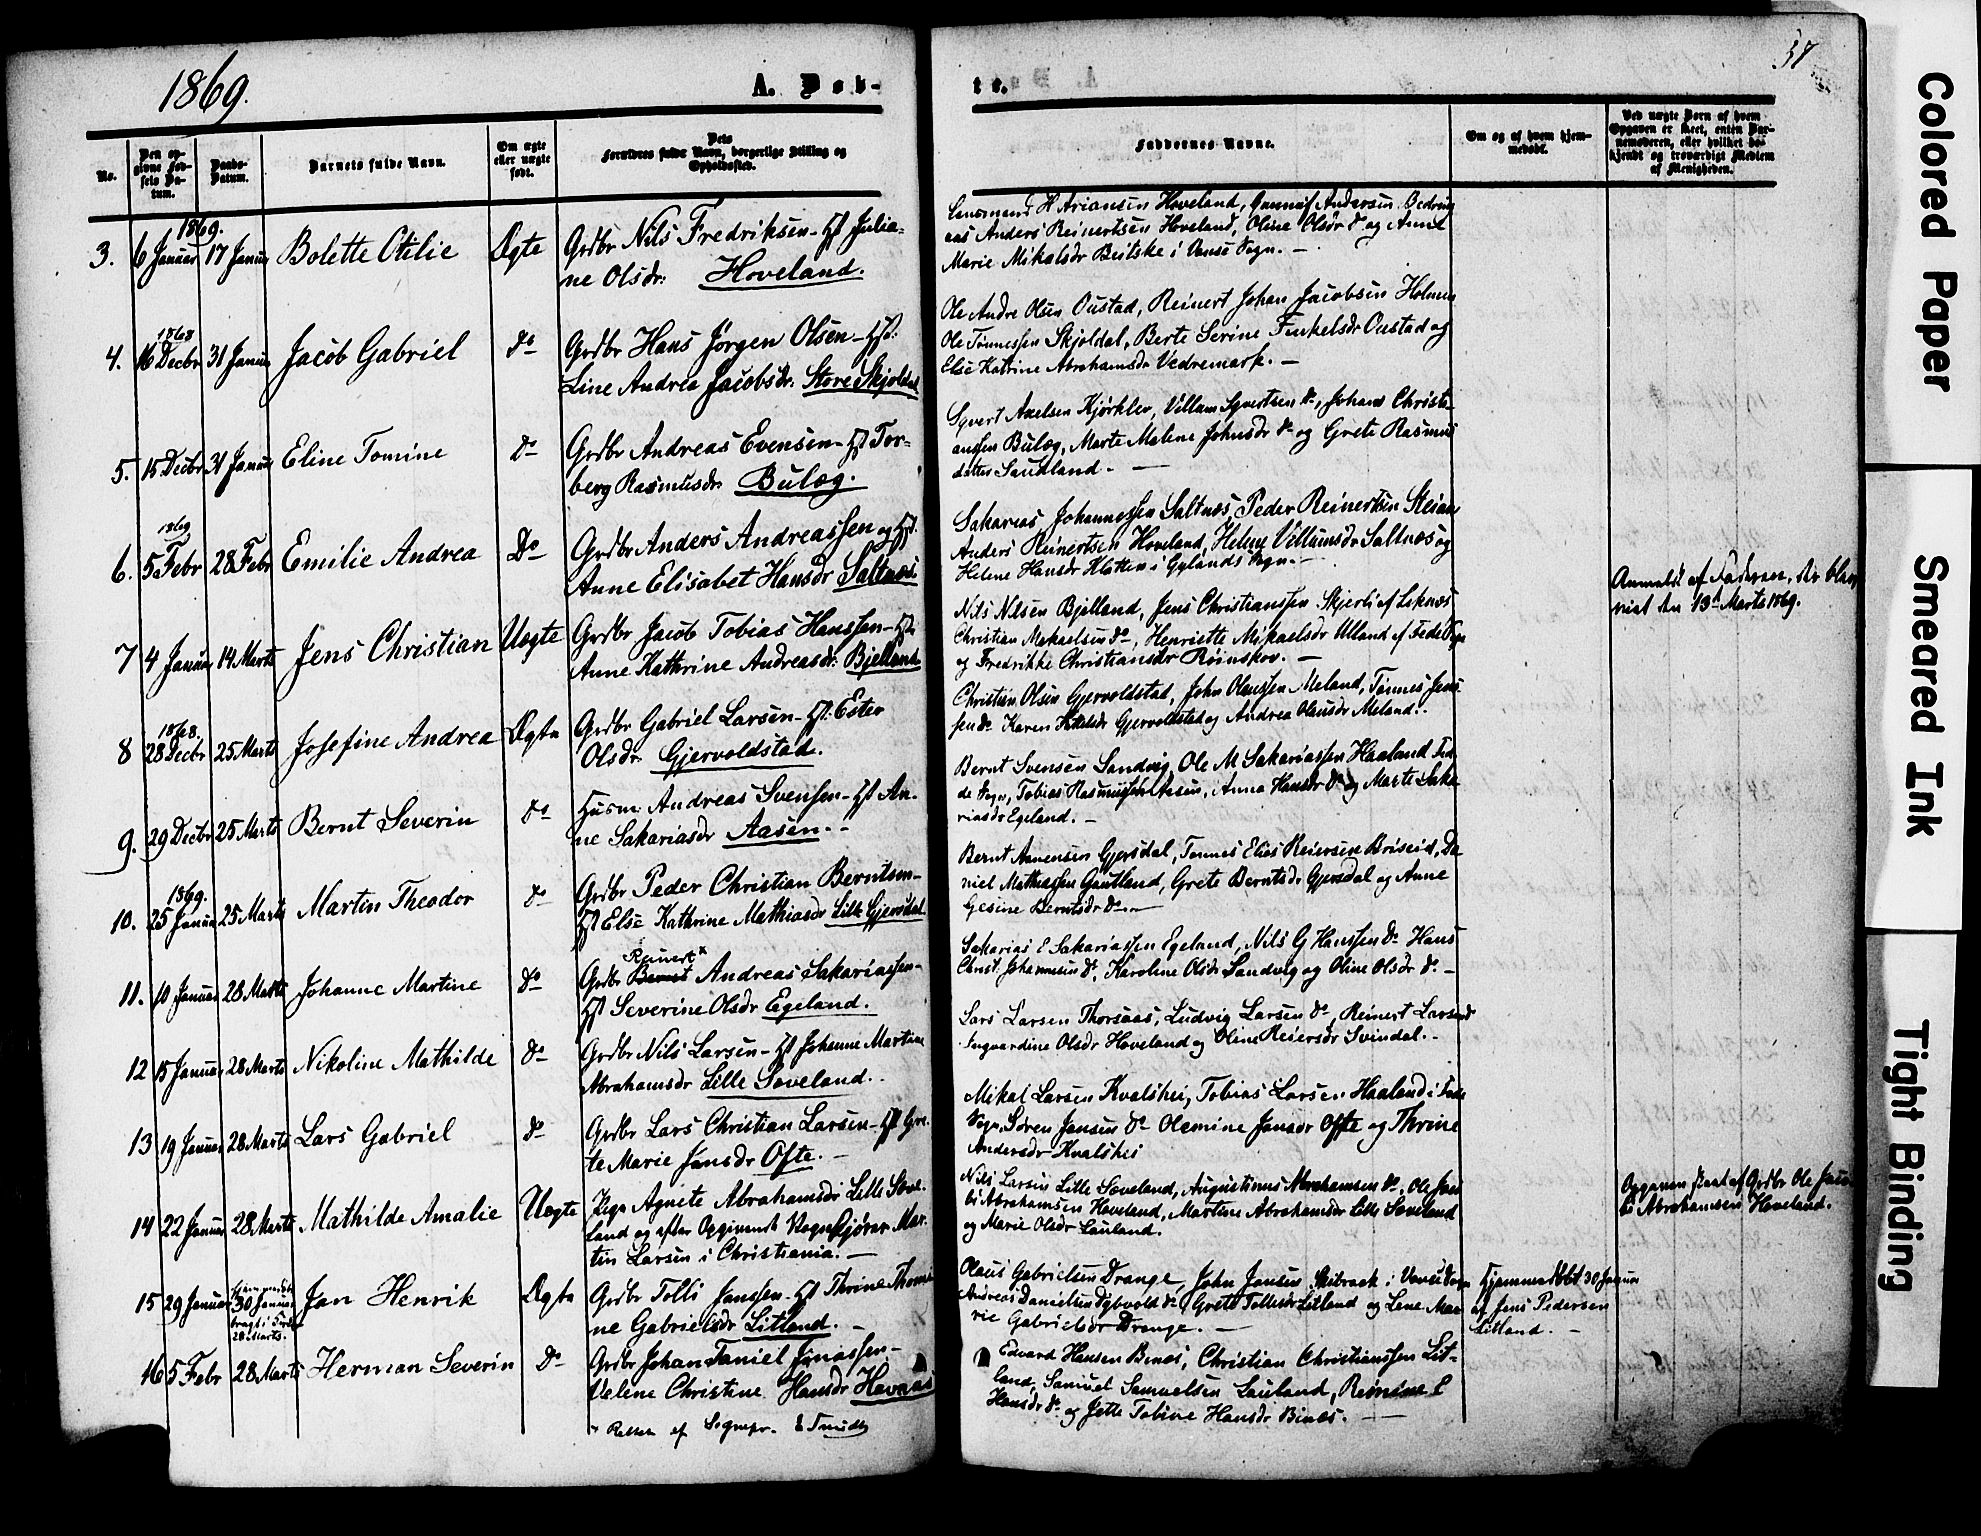 1869.
A. Døb-
te.
57
No.
Den op-
givne Fød-
sels Da-
tum.
Daabs-
Datum.
Barnets fulde Navn.
Om ægte
eller uægte
født.
Dets
Forældres fulde Navn, borgerlige Stilling og
Opholdssted.
Faddernes Navne.
Om og af hvem hjem-
medøbt.
Ved uægte Børn af hvem
Opgaven er skeet, enten Bar-
nemoderen, eller hvilket be-
kjendt og troværdigt Medlem
af Menigheden.
1869.
3. 6 Januar 17 Januar Bolette Otilie Ægte Grdbr Nils Fredriksen - Hst Julia-
ne Olsdr. Hoveland.
Lensmand H Ariansen Hoveland, Gunnuf Andersen
Anders Reinertsen Hoveland, Oline Olsdr do og Anne
Marie Mikalsdr Beitske i Vanse Sogn. -
1868
4. 16 Decbr 31 Januar Jacob Gabriel do Grdbr Hans Jørgen Olsen - Hst.
Line Andrea Jacobsdr. Store Skjoldal
Ole Andre Olsen Oustad, Reinert Johan Jacobsen Holmen
Ole Tønnessen Skjoldal, Berte Serine Tenkelsdr Oustad og
Else Katrine Abrahamsdr Vedremark. -
5. 15 Decbr 31 Januar Eline Tomine do Grdbr Andreas Evensen - Hst Tor-
berg Rasmusdr. Buleg.
Syvert Axelsen Kjørklev, Villum Syvertsen do, Johans Christi-
anssen Buleg, Marte Malene Johnsdr do og Grete Rasmus
datter Saudland. -
1869
6. 5 Febr 28 Febr Emilie Andrea Do Grdbr Anders Andreassen og Hst.
Anne Elisabet Hansdr Saltnes.
Sakarias Johannessen Saltnes, Peder Reinertsen
Anders Reinertsen Hoveland, Helene Villumsdr Saltnes og
Helene Hansdr Klatten i Gylands Sogn. -
7 4 Januar 14 Marts Jens Christian Uægte Grdbr Jacob Tobias Hanssen - Hst.
Anne Kathrine Andreasdr. Bjelland
Nils Nilsen Bjelland, Jens Christianssen Skjerli af Leknes
Christian Mikaelsen do, Henriette Mikaelsdr Ulland af Fede Sogn
og Fredrikke Christiansdr Røinskov. -
Anmeldt af Faderen,
den 13de Marts 1869.
1868.
8 28 Decbr 25 Marts Josefine Andrea Ægte Grdbr Gabriel Larsen - Hst. Ester
Olsdr. Gjervoldstad.
Christian Olsen Gjervoldstad, John Olaussen Meland, Tønnes Jens
sen do Karen Gjervoldstad og Andrea Olausdr Meland.
9. 29 Decbr 25 Marts Bernt Severin do Husm. Andreas Svensen - Hst An-
ne Sakariasdr Aasen. -
Bernt Svensen Sandvig, Ole M Sakariassen Haaland Fe-
de Sogn, Tobias Rasmussen Aasen, Anna Hansdr do og Marte Saka
riasdr Egeland. -
1869.
10. 25 Januar 25 Marts Martin Theodor do Grdbr Peder Christian Berntsen -
Hst Else Kathrine Mathiasdr Lille Gjersdal
Bernt Aanensen Gjersdal, Tønnes Elias Reiersen Briseid, Da
niel Mathiassen Gautland, Grete Berntsdr Gjersdal og Anne
Gesine Berntsdr do -
11. 10 Januar 28 Marts Johanne Martine do Grdbr Bernt Reinert* Andreas Sakariassen -
Hst Severine Olsdr Egeland.
Sakarias E Sakariassen Egeland, Nils G Hanssen do Hans
Christ. Johannesen do, Karoline Olsdr Sandvig og Oline Olsdr do -
12 15 Januar 28 Marts Nikoline Mathilde do Grdbr Nils Larsen - Hst Johanne Martine
Abrahamsdr Lille Søveland.
Lars Larsen Thorsaas, Ludvig Larsen do, Reinert Larsen do
Ingvardine Olsdr Hoveland og Oline Reiersdr Svindal. -
13 19 Januar 28 Marts Lars Gabriel do Grdbr Lars Christian Larsen - Hst Gre-
te Marie Jansdr Ofte. -
Mikal Larsen Kvalshei, Tobias Larsen Haaland i Fede
Sogn, Søren Jansen do Olemine Jansdr Ofte og Thrine
Andersdr Kvalshei
14 22 Januar 28 Marts Mathilde Amalie Uægte Pige Agnete Abrahamsdr Lille Søve-
land og efter Opgivende Vognkjører Mar-
tin Larsen i Christiania. -
Nils Larsen Lille Søveland, Augustinus Abrahamsen do, Ole Jaco
bs Abrahamsen Hoveland, Martine Abrahamsdr Lille Søveland
og Marie Olsdr Lauland.
Opgaven skeet af Grdbr Ole Jaco
bs Abrahamsen Hoveland.
15 29 Januar 30 Januar
bragt i Kirke
28 Marts. Jan Henrik Ægte Grdbr Tolli Janssen - Hst Thrine Thomi-
ne Gabrielsdr Litland. -
Olaus Gabrielsen Drange, John Jansen Skibraak i Vanse Sogn
Andreas Danielsen Dybvold do, Grete Tollisdr Litland og Lene Ma-
rie Gabrielsdr Drange. -
Hjemmedøbt 30 Januar
af Jens Pedersen
Litland. -
16 5 Febr 28 Marts Herman Severin Do Grdbr Johan Daniel Jonassen -
Helene Christine Hansdr Havaas
Edvard Hansen Bines, Christian Christianssen Lit-
land, Samuel Samuelsen Lauland, Reinine
Hansdr do og Jette Tobine Hansdr Bines. -
* Rettet af Sognepr.
Colored Paper
Smeared Ink
Tight Binding